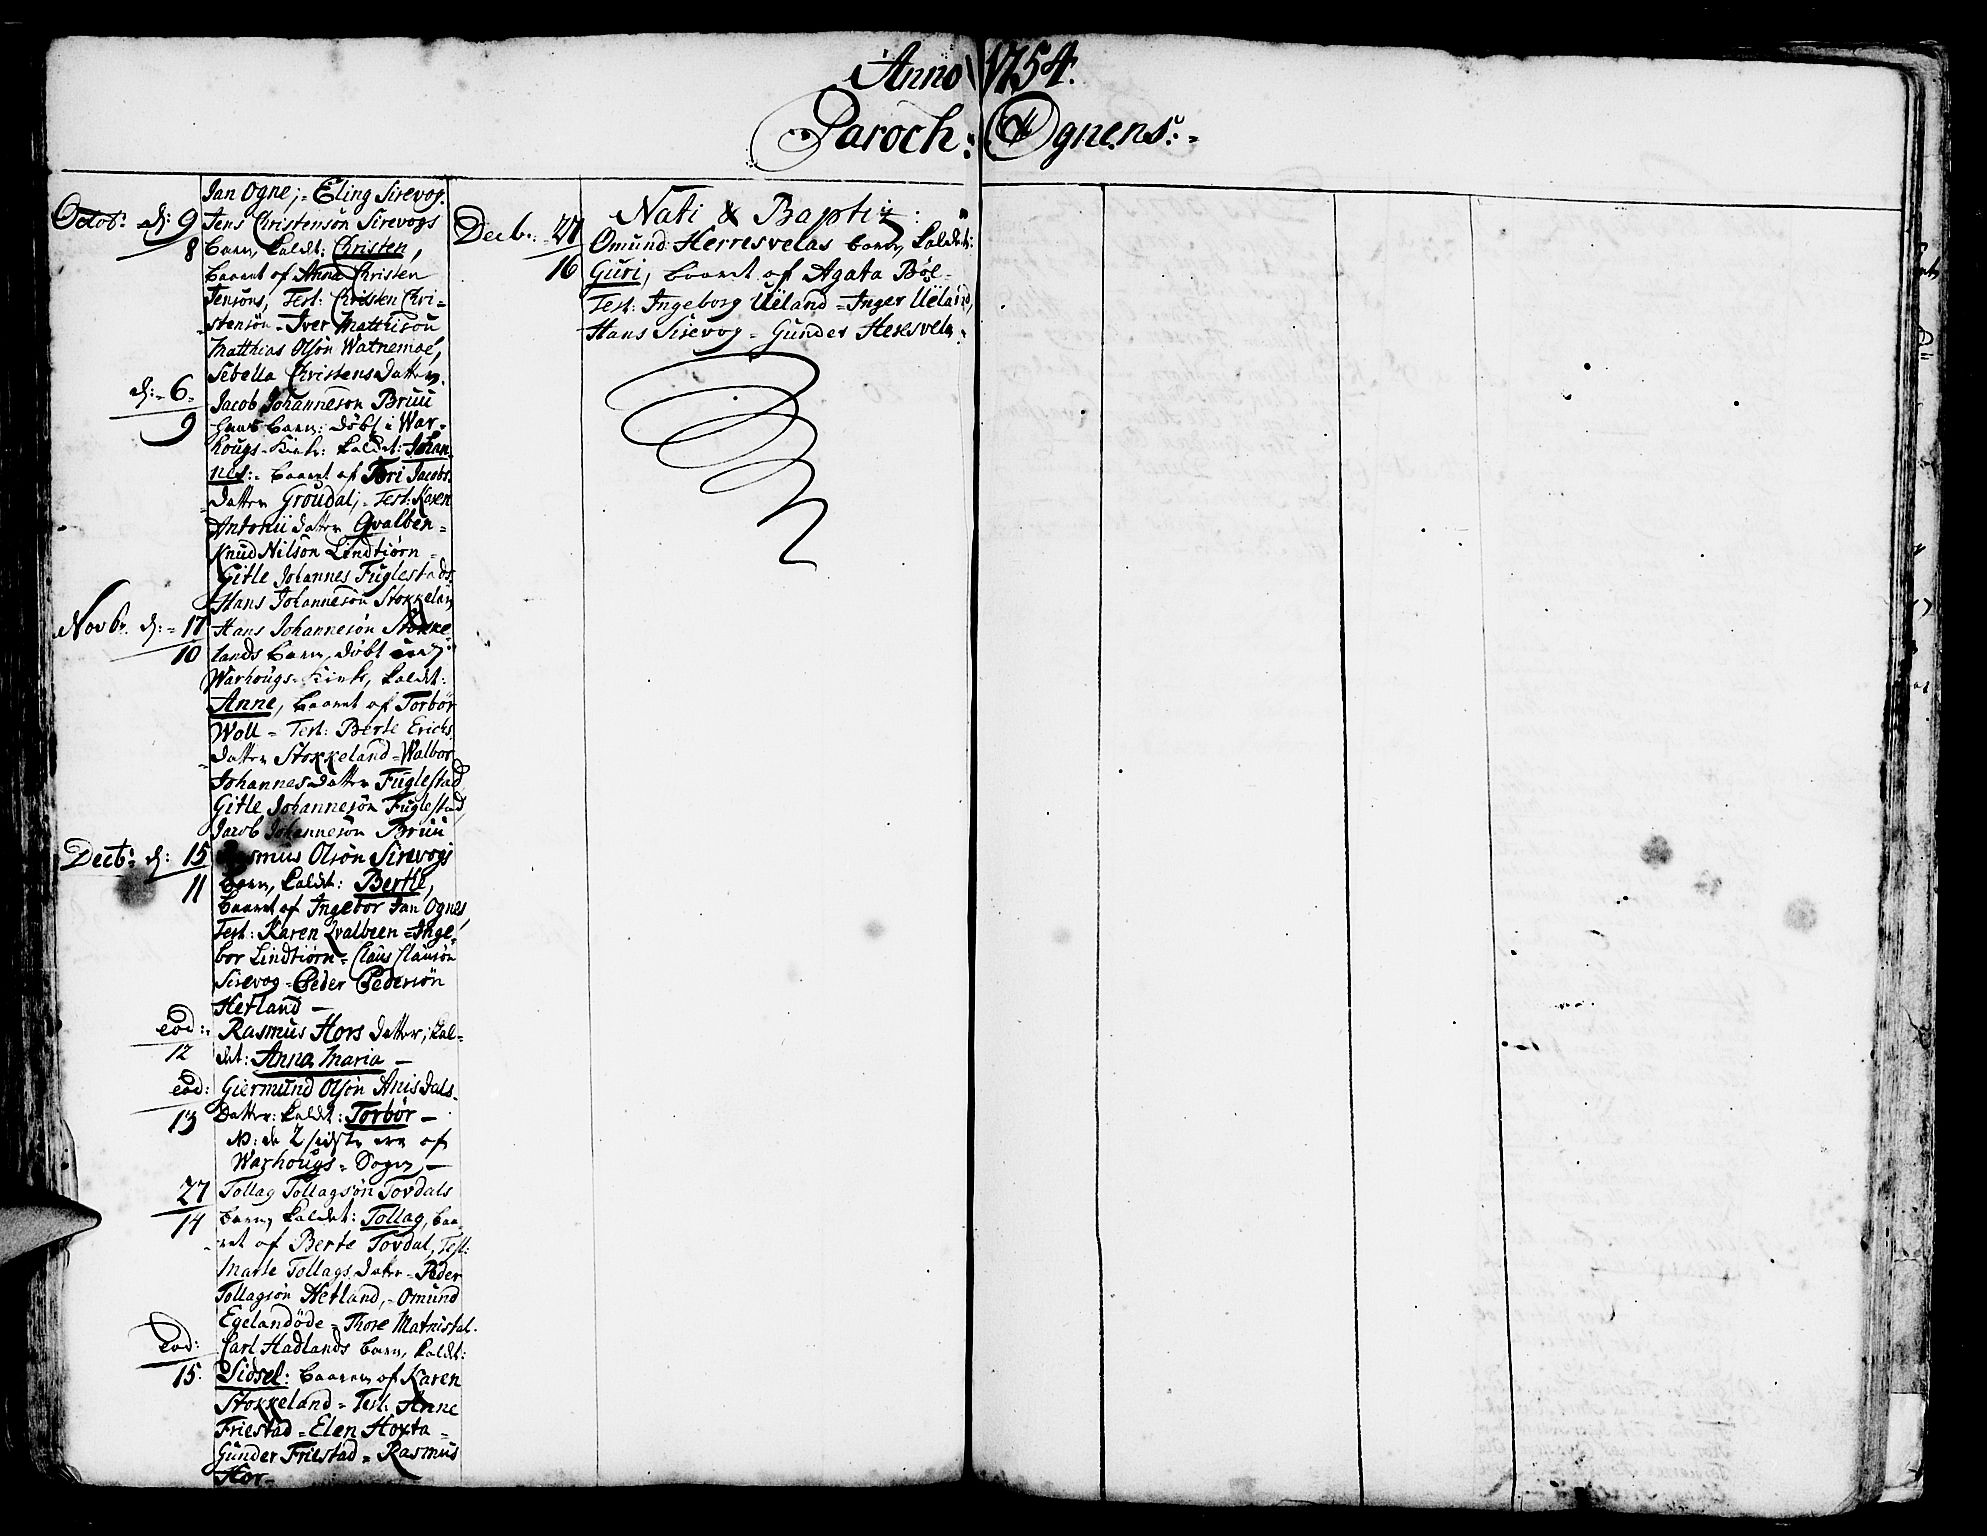 Anno 1754.
Paroch: Ognens:
Jan Ogne; = Eling Sirevog.
Octobr: d: 9 Jens Christensøn Sirevogs
8 barn, kaldt: Christen,
baaret af Anna Christen
Jensøns, Test: Christen Chri-
stensøn - Iver Matthisøn
Matthias Olsøn Watnemoe,
Sebella Christens datter.
d: 6 Jacob Johannesøn Bruu
9 barn: døbt i War-
hougs-Kirke: kaldet: Johan-
nes: baaret af Tori Jacobs
datter Groudal; - Test: Karen
Antonii datter Qvalben -
Knud Nilsøn Lindtiørn -
Gitle Johannes Fuglestads
Hans Johannesøn Stokkelan
Novbr. d: 17 Hans Johannesøn Stokke-
10 lands barn, døbt udj
Warhougs-Kirke, kaldet:
Anne, baaret af Torbør
Woll - Test: Berte Erichs
datter Stokkeland - Walbor
Johannes datter Fuglestad
Gitle Johannesøn Fuglestad,
Jacob Johannesøn Bruu
Decbr: d: 15 Rasmus Olsøn Sirevogs
11 barn, kaldet: Berthe,
baaret af Ingebor Jan Ognes,
Test: Karen Qvalbeen - Inge-
bor Lindtiørn - Claus Clausøn
Sirevog - Peder Pedersøn
Hetland -
eod: Rasmus Hors datter, kal-
12 det: Anna Maria -
eod: Giermund Olsøn Anisdals
13 Datter: kaldet: Torbør -
NB: de 2 sidste ere af
Warhougs-Sogn, -
27 Tollag Tollagsøn Tovdals
14 barn, kaldet: Tollag, baa-
ret af Berte Tovdal, Test:
Marte Tollags datter - Peder
Tollagsøn Hetland, - Omund
Egelandöde - Thore Matnistal.
Eod: Carl Hadlands barn, kaldet:
15. Sidsel: baaren af Karen
Stokkeland - Test: Anne
Friestad - Elen Hoxta -
Gunder Friestad - Rasmus
Hor -
Nati & Baptiz:
Decbr: 27 Omund Herresvelas barn, kaldet:
16 Guri, baaret af Agata Bøe -
Test: Ingeborg Ueland - Inger Ueland,
Hans Sirevog - Gunder Hersvela: